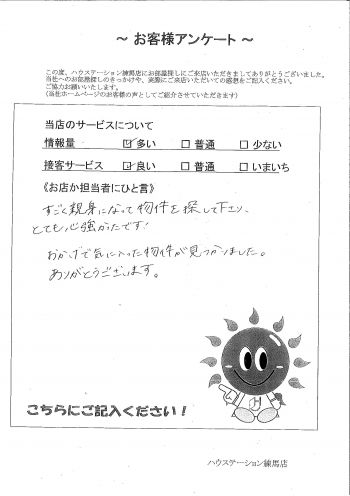 ～ お客様アンケート ～
この度、ハウステーション練馬店にお部屋探しにご来店いただきましてありがとうございました。
当社へのお部屋探しのきっかけや、実際にご来店いただいての感想をご記入ください。
ご協力お願いいたします。
(当社ホームページのお客様の声としてご紹介させていただきます)
当店のサービスについて
情報量 ☑多い □普通 □少ない
接客サービス ☑良い □普通 □いまいち
《お店か担当者にひと言》
すごく親身になって物件を探して下さり、
とても心強かったです!
おかげで気に入った物件が見つかりました。
ありがとうございます。
こちらにご記入ください！
ハウステーション練馬店